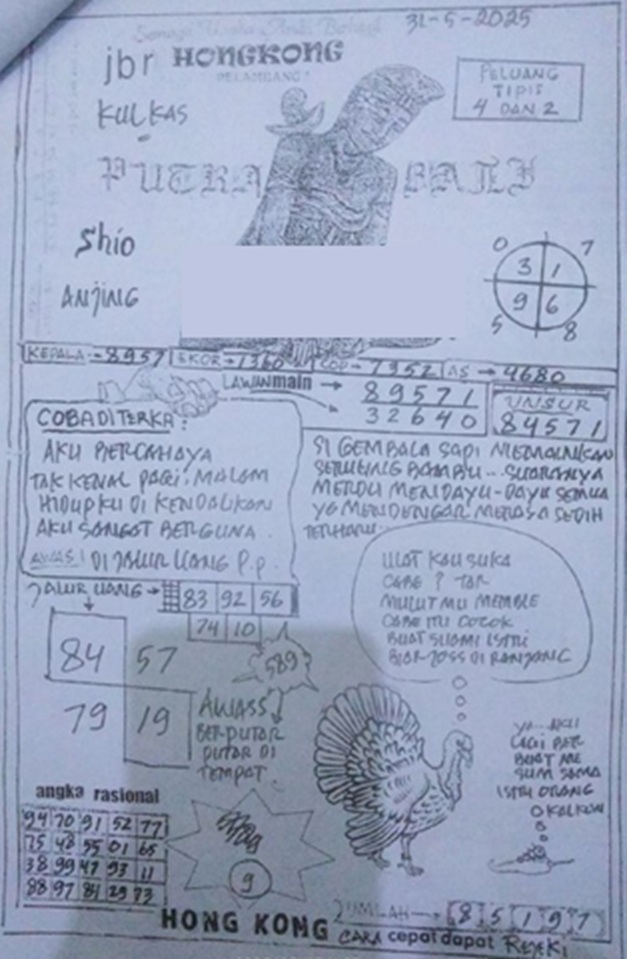 31-5-2025
jbr HONGKONG
KULKAS
PELUANG
TIPIS
4 DAN 2
PUTRA BALI
Shio
ANJING
0 7
3 1
9 6
5 8
KEPALA - 8957 EKOR → 1360 COP → 7952 AS → 4680
LAWAN main → 89571
32640
UNSUR
84571
COBA DITERKA:
AKU BERCAHAYA
TAK KENAL PAGI. MALAM
HIDUPKU DI KENDALIKAN
AKU SANGAT BERGUNA.
AWAS! DI JALUR UANG P.P.
SI GEMBALA SAPI MEMAINKAN
SERULING BAMBU... SUARANYA
MERDU MENDAYU-DAYU SEMUA
YG MENDENGAR MERASA SEDIH
TERHARU...
ULAT KAU SUKA
CABE ? TAR
MULUTMU MEMBLE
CABE ITU COCOK
BUAT SUAMI ISTRI
BIAR JOSS DI RANJANG
JALUR UANG → 83 92 56
74 10
84 57
589
79 19
AWASS
BERPUTAR
PUTAR DI
TEMPAT.
YA... AKU
ISTRI ORANG
angka rasional
94 70 91 52 77
75 48 55 01 65
38 99 47 93 11
88 97 81 29 73
9
JUMLAH → 8 5 1 9 7
HONG KONG CARA cepat dapat REJEKI